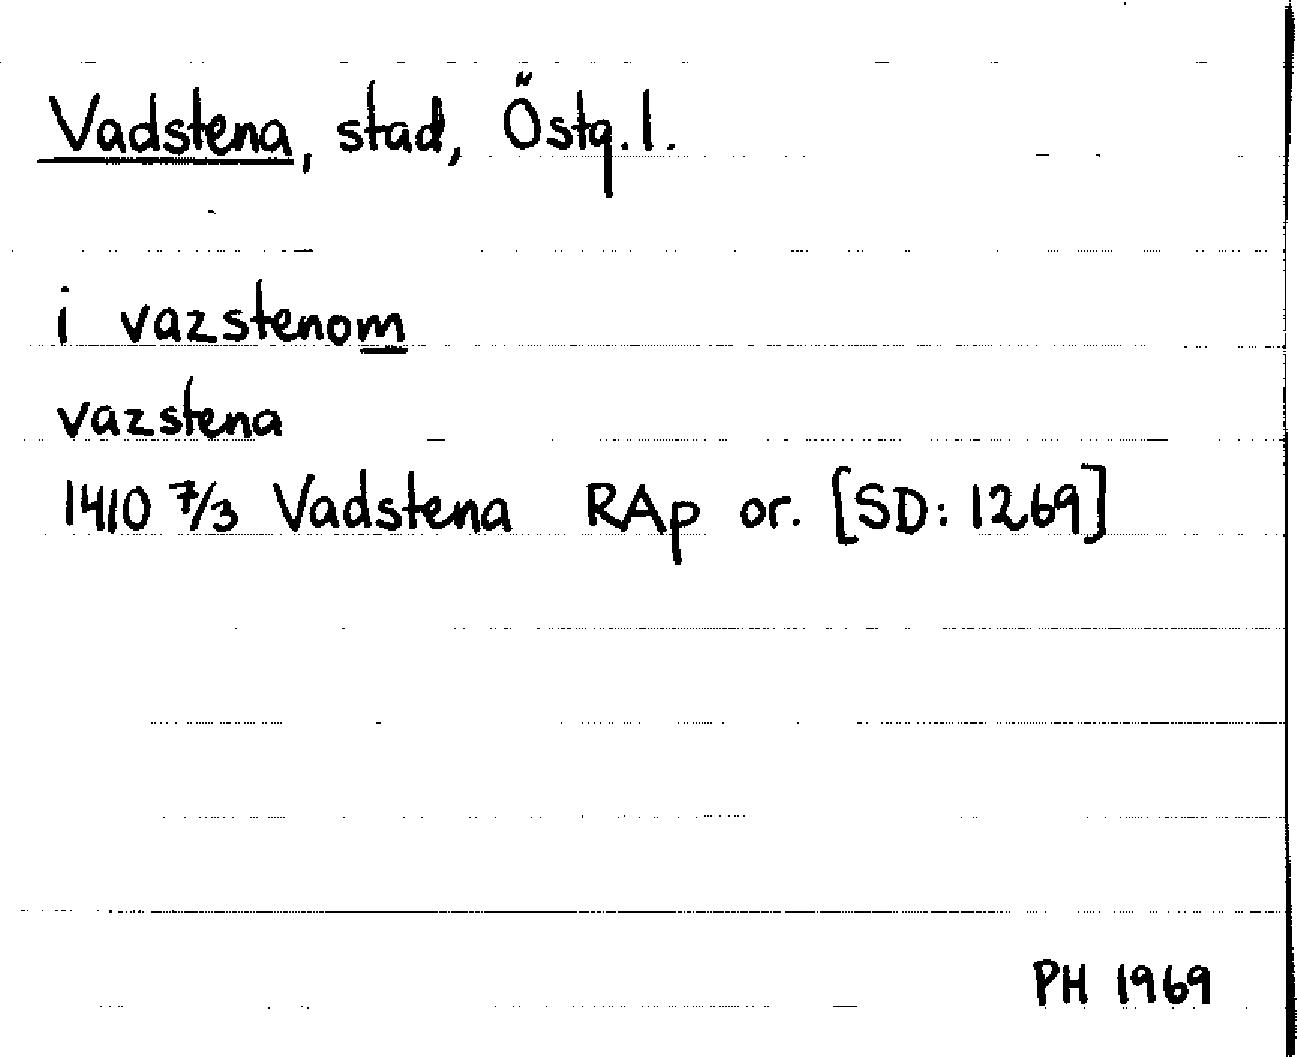 Vadstena, stad, Östg.l.
i vazstenom
vazstena
1410 7/3 Vadstena RAp or. [SD: 1269]
PH 1969